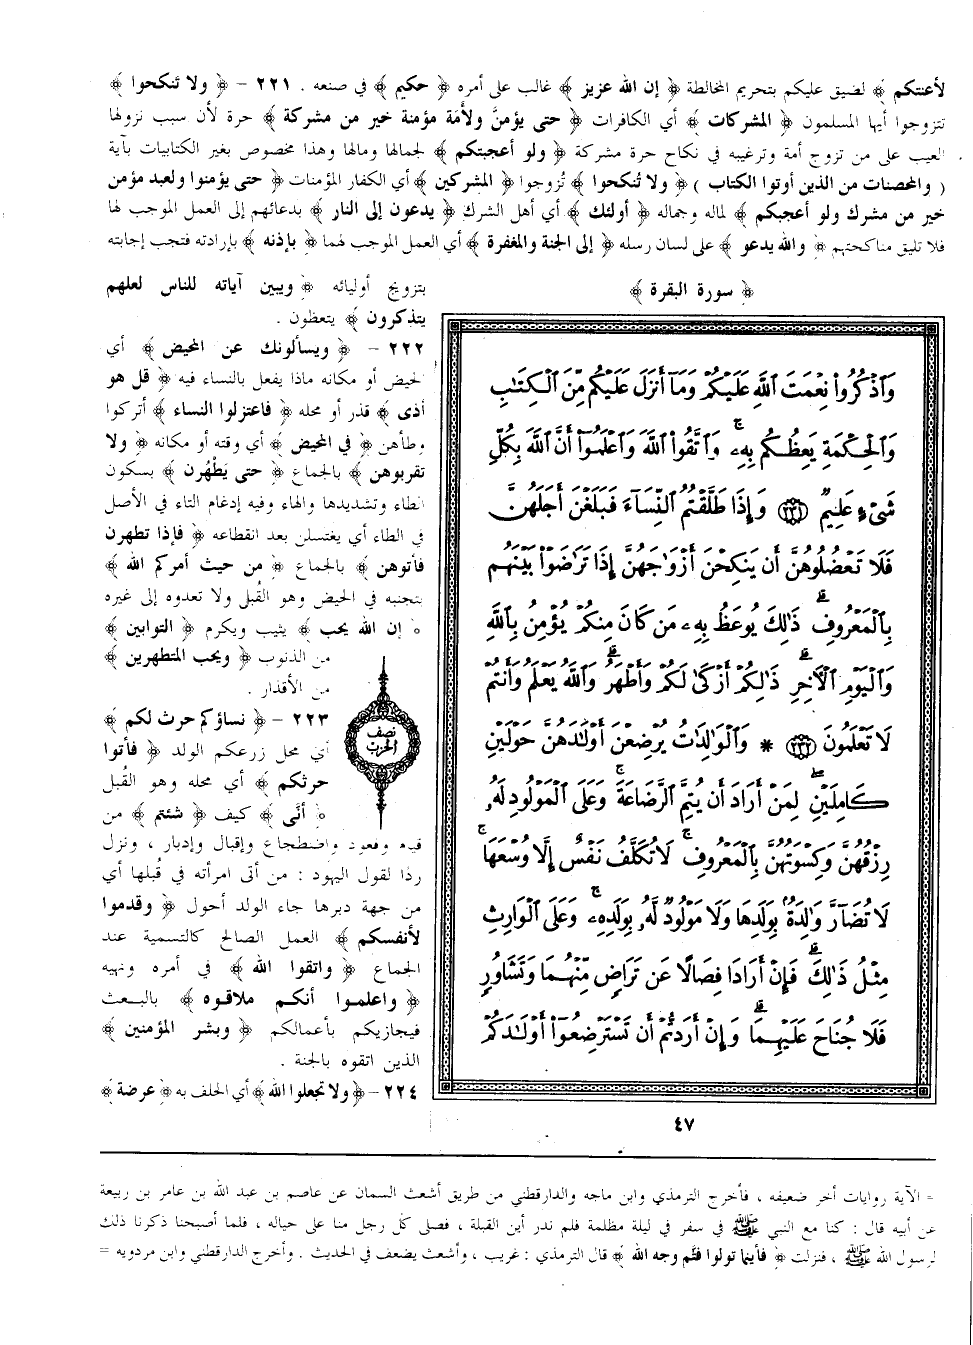 لأعنتكم ﴾ لضيق عليكم بتحريم المخالطة ﴿ إن الله عزيز ﴾ غالب على أمره ﴿ حكيم ﴾ في صنعه . ٢٢١ - ﴿ ولا تَنكحوا ﴾
تتزوجوا أيها المسلمون ﴿ المشركات ﴾ أي الكافرات ﴿ حتى يؤمنَّ ولأَمَة مؤمنة خير من مشركة ﴾ حرة لأن سبب نزولها
العيب على من تزوج أمة وترغيبه في نكاح حرة مشركة ﴿ ولو أعجبتكم ﴾ لجمالها ومالها وهذا مخصوص بغير الكتابيات بآية
( والمحصنات من الذين أوتوا الكتاب ) ﴿ ولا تُنكحوا ﴾ تُزوجوا ﴿ المشركين ﴾ أي الكفار المؤمنات ﴿ حتى يؤمنوا ولعبد مؤمن
خير من مشرك ولو أعجبكم ﴾ لماله وجماله ﴿ أولئك ﴾ أي أهل الشرك ﴿ يدعون إلى النار ﴾ بدعائهم إلى العمل الموجب لها
فلا تليق مناكحتهم ﴿ والله يدعو ﴾ على لسان رسله ﴿ إلى الجنة والمغفرة ﴾ أي العمل الموجب لهما ﴿ بإذنه ﴾ بإرادته فتجب إجابته
﴿ سورة البقرة ﴾
وَٱذْكُرُوا۟ نِعْمَتَ ٱللَّهِ عَلَيْكُمْ وَمَآ أَنزَلَ عَلَيْكُم مِّنَ ٱلْكِتَٰبِ
وَٱلْحِكْمَةِ يَعِظُكُم بِهِۦ ۚ وَٱتَّقُوا۟ ٱللَّهَ وَٱعْلَمُوٓا۟ أَنَّ ٱللَّهَ بِكُلِّ
شَىْءٍ عَلِيمٌ ﴿٢٣١﴾ وَإِذَا طَلَّقْتُمُ ٱلنِّسَآءَ فَبَلَغْنَ أَجَلَهُنَّ
فَلَا تَعْضُلُوهُنَّ أَن يَنكِحْنَ أَزْوَٰجَهُنَّ إِذَا تَرَٰضَوْا۟ بَيْنَهُم
بِٱلْمَعْرُوفِ ۗ ذَٰلِكَ يُوعَظُ بِهِۦ مَن كَانَ مِنكُمْ يُؤْمِنُ بِٱللَّهِ
وَٱلْيَوْمِ ٱلْءَاخِرِ ۗ ذَٰلِكُمْ أَزْكَىٰ لَكُمْ وَأَطْهَرُ ۗ وَٱللَّهُ يَعْلَمُ وَأَنتُمْ
لَا تَعْلَمُونَ ﴿٢٣٢﴾ * وَٱلْوَٰلِدَٰتُ يُرْضِعْنَ أَوْلَٰدَهُنَّ حَوْلَيْنِ
كَامِلَيْنِ ۖ لِمَنْ أَرَادَ أَن يُتِمَّ ٱلرَّضَاعَةَ ۚ وَعَلَى ٱلْمَوْلُودِ لَهُۥ
رِزْقُهُنَّ وَكِسْوَتُهُنَّ بِٱلْمَعْرُوفِ ۚ لَا تُكَلَّفُ نَفْسٌ إِلَّا وُسْعَهَا ۚ
لَا تُضَآرَّ وَٰلِدَةٌۢ بِوَلَدِهَا وَلَا مَوْلُودٌ لَّهُۥ بِوَلَدِهِۦ ۚ وَعَلَى ٱلْوَارِثِ
مِثْلُ ذَٰلِكَ ۗ فَإِنْ أَرَادَا فِصَالًا عَن تَرَاضٍ مِّنْهُمَا وَتَشَاوُرٍ
فَلَا جُنَاحَ عَلَيْهِمَا ۗ وَإِنْ أَرَدتُّمْ أَن تَسْتَرْضِعُوٓا۟ أَوْلَٰدَكُمْ
بتزويج أوليائه ﴿ ويبين آياته للناس لعلهم
يتذكرون ﴾ يتعظون .
٢٢٢ - ﴿ ويسألونك عن المحيض ﴾ أي
الحيض أو مكانه ماذا يفعل بالنساء فيه ﴿ قل هو
أذى ﴾ قذر أو محله ﴿ فاعتزلوا النساء ﴾ أتركوا
وطأهن ﴿ في المحيض ﴾ أي وقته أو مكانه ﴿ ولا
تقربوهن ﴾ بالجماع ﴿ حتى يَطْهُرن ﴾ بسكون
الطاء وتشديدها والهاء وفيه إدغام التاء في الأصل
في الطاء أي يغتسلن بعد انقطاعه ﴿ فإذا تطهرن
فأتوهن ﴾ بالجماع ﴿ من حيث أمركم الله ﴾
بتجنبه في الحيض وهو القُبل ولا تعدوه إلى غيره
﴿ إن الله يحب ﴾ يثيب ويكرم ﴿ التوابين ﴾
من الذنوب ﴿ ويحب المتطهرين ﴾
من الأقذار .
نصف الحزب
٢٢٣ - ﴿ نساؤكم حرث لكم ﴾
أي محل زرعكم الولد ﴿ فأتوا
حرثكم ﴾ أي محله وهو القُبل
﴿ أنَّى ﴾ كيف ﴿ شئتم ﴾ من
قيام وقعود واضطجاع وإقبال وإدبار ، ونزل
ردا لقول اليهود : من أتى امرأته في قُبلها أي
من جهة دبرها جاء الولد أحول ﴿ وقدموا
لأنفسكم ﴾ العمل الصالح كالتسمية عند
الجماع ﴿ واتقوا الله ﴾ في أمره ونهيه
﴿ واعلموا أنكم ملاقوه ﴾ بالبعث
فيجازيكم بأعمالكم ﴿ وبشر المؤمنين ﴾
الذين اتقوه بالجنة .
٢٢٤ - ﴿ ولا تجعلوا الله ﴾ أي الحلف به ﴿ عرضة ﴾
٤٧
= الآية روايات أخر ضعيفه ، فأخرج الترمذي وابن ماجه والدارقطني من طريق أشعث السمان عن عاصم بن عبد الله بن عامر بن ربيعة
عن أبيه قال : كنا مع النبي ﷺ في سفر في ليلة مظلمة فلم ندر أين القبلة ، فصلى كل رجل منا على حياله ، فلما أصبحنا ذكرنا ذلك
لرسول الله ﷺ ، فنزلت ﴿ فأينما تولوا فثَم وجه الله ﴾ قال الترمذي : غريب ، وأشعث يضعف في الحديث . وأخرج الدارقطني وابن مردويه =